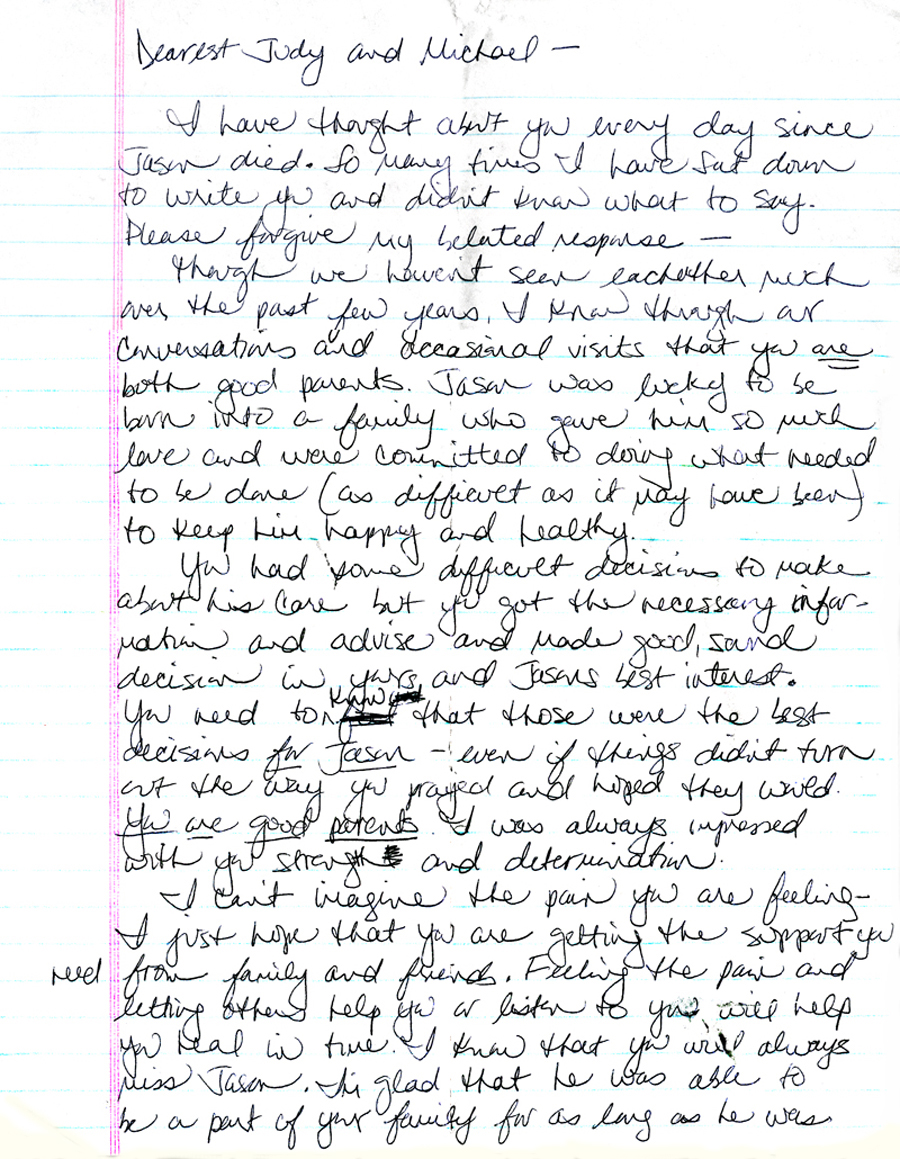 Dearest Judy and Michael —
I have thought about you every day since
Jason died. So many times I have sat down
to write you and didn't know what to say.
Please forgive my belated response —
Though we haven't seen eachother much
over the past few years, I know through our
conversations and occasional visits that you are
both good parents. Jason was lucky to be
born into a family who gave him so much
love and were committed to doing what needed
to be done (as difficult as it may have been)
to keep him happy and healthy.
You had some difficult decisions to make
about his care but you got the necessary infor-
mation and advise and made good, sound
decision in yours and Jasons best interest.
You need to know that those were the best
decisions for Jason - even if things didn't turn
out the way you prayed and hoped they would.
You are good parents. I was always impressed
with your strength and determination.
I can't imagine the pain you are feeling -
I just hope that you are getting the support you
need from family and friends. Feeling the pain and
letting others help you or listen to you will help
you heal in time. I know that you will always
miss Jason. I'm glad that he was able to
be a part of your family for as long as he was.